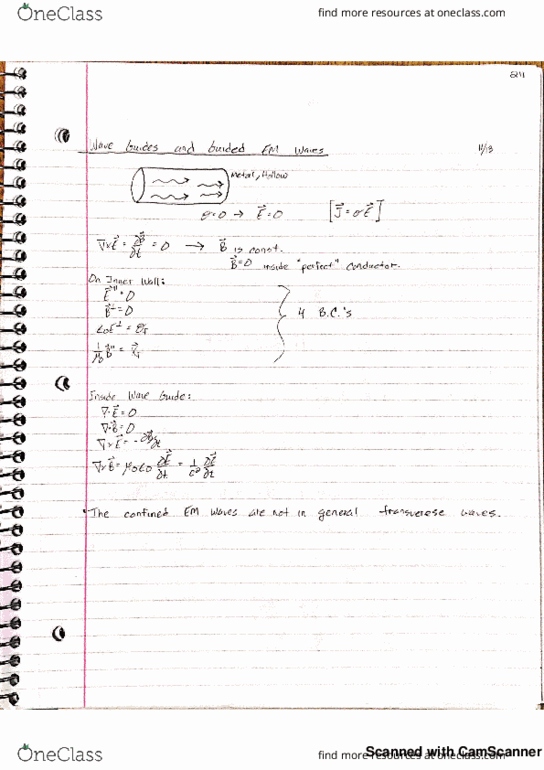 OneClass find more resources at oneclass.com
Wave Guides and Guided EM Waves 11/13
Metal, Hollow
→ E⃗=0 [J⃗=σE⃗]
∇×E⃗ = ∂B⃗/∂t = 0 → B⃗ is const.
B⃗=0 inside "perfect" conductor.
On Inner Wall:
E⃗"=0
B⃗⊥=0
4 B.C.'s
Inside Wave Guide:
∇·E⃗=0
∇·B⃗=0
∇×E⃗ = -∂B⃗/∂t
∇×B⃗ = μ₀ε₀ ∂E⃗/∂t = 1/c² ∂E⃗/∂t
• The confined EM waves are not in general transverese waves.
Scanned with CamScanner
OneClass find more resources at oneclass.com